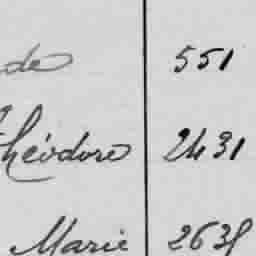 de 551
Théodore 2431
Marie 2635